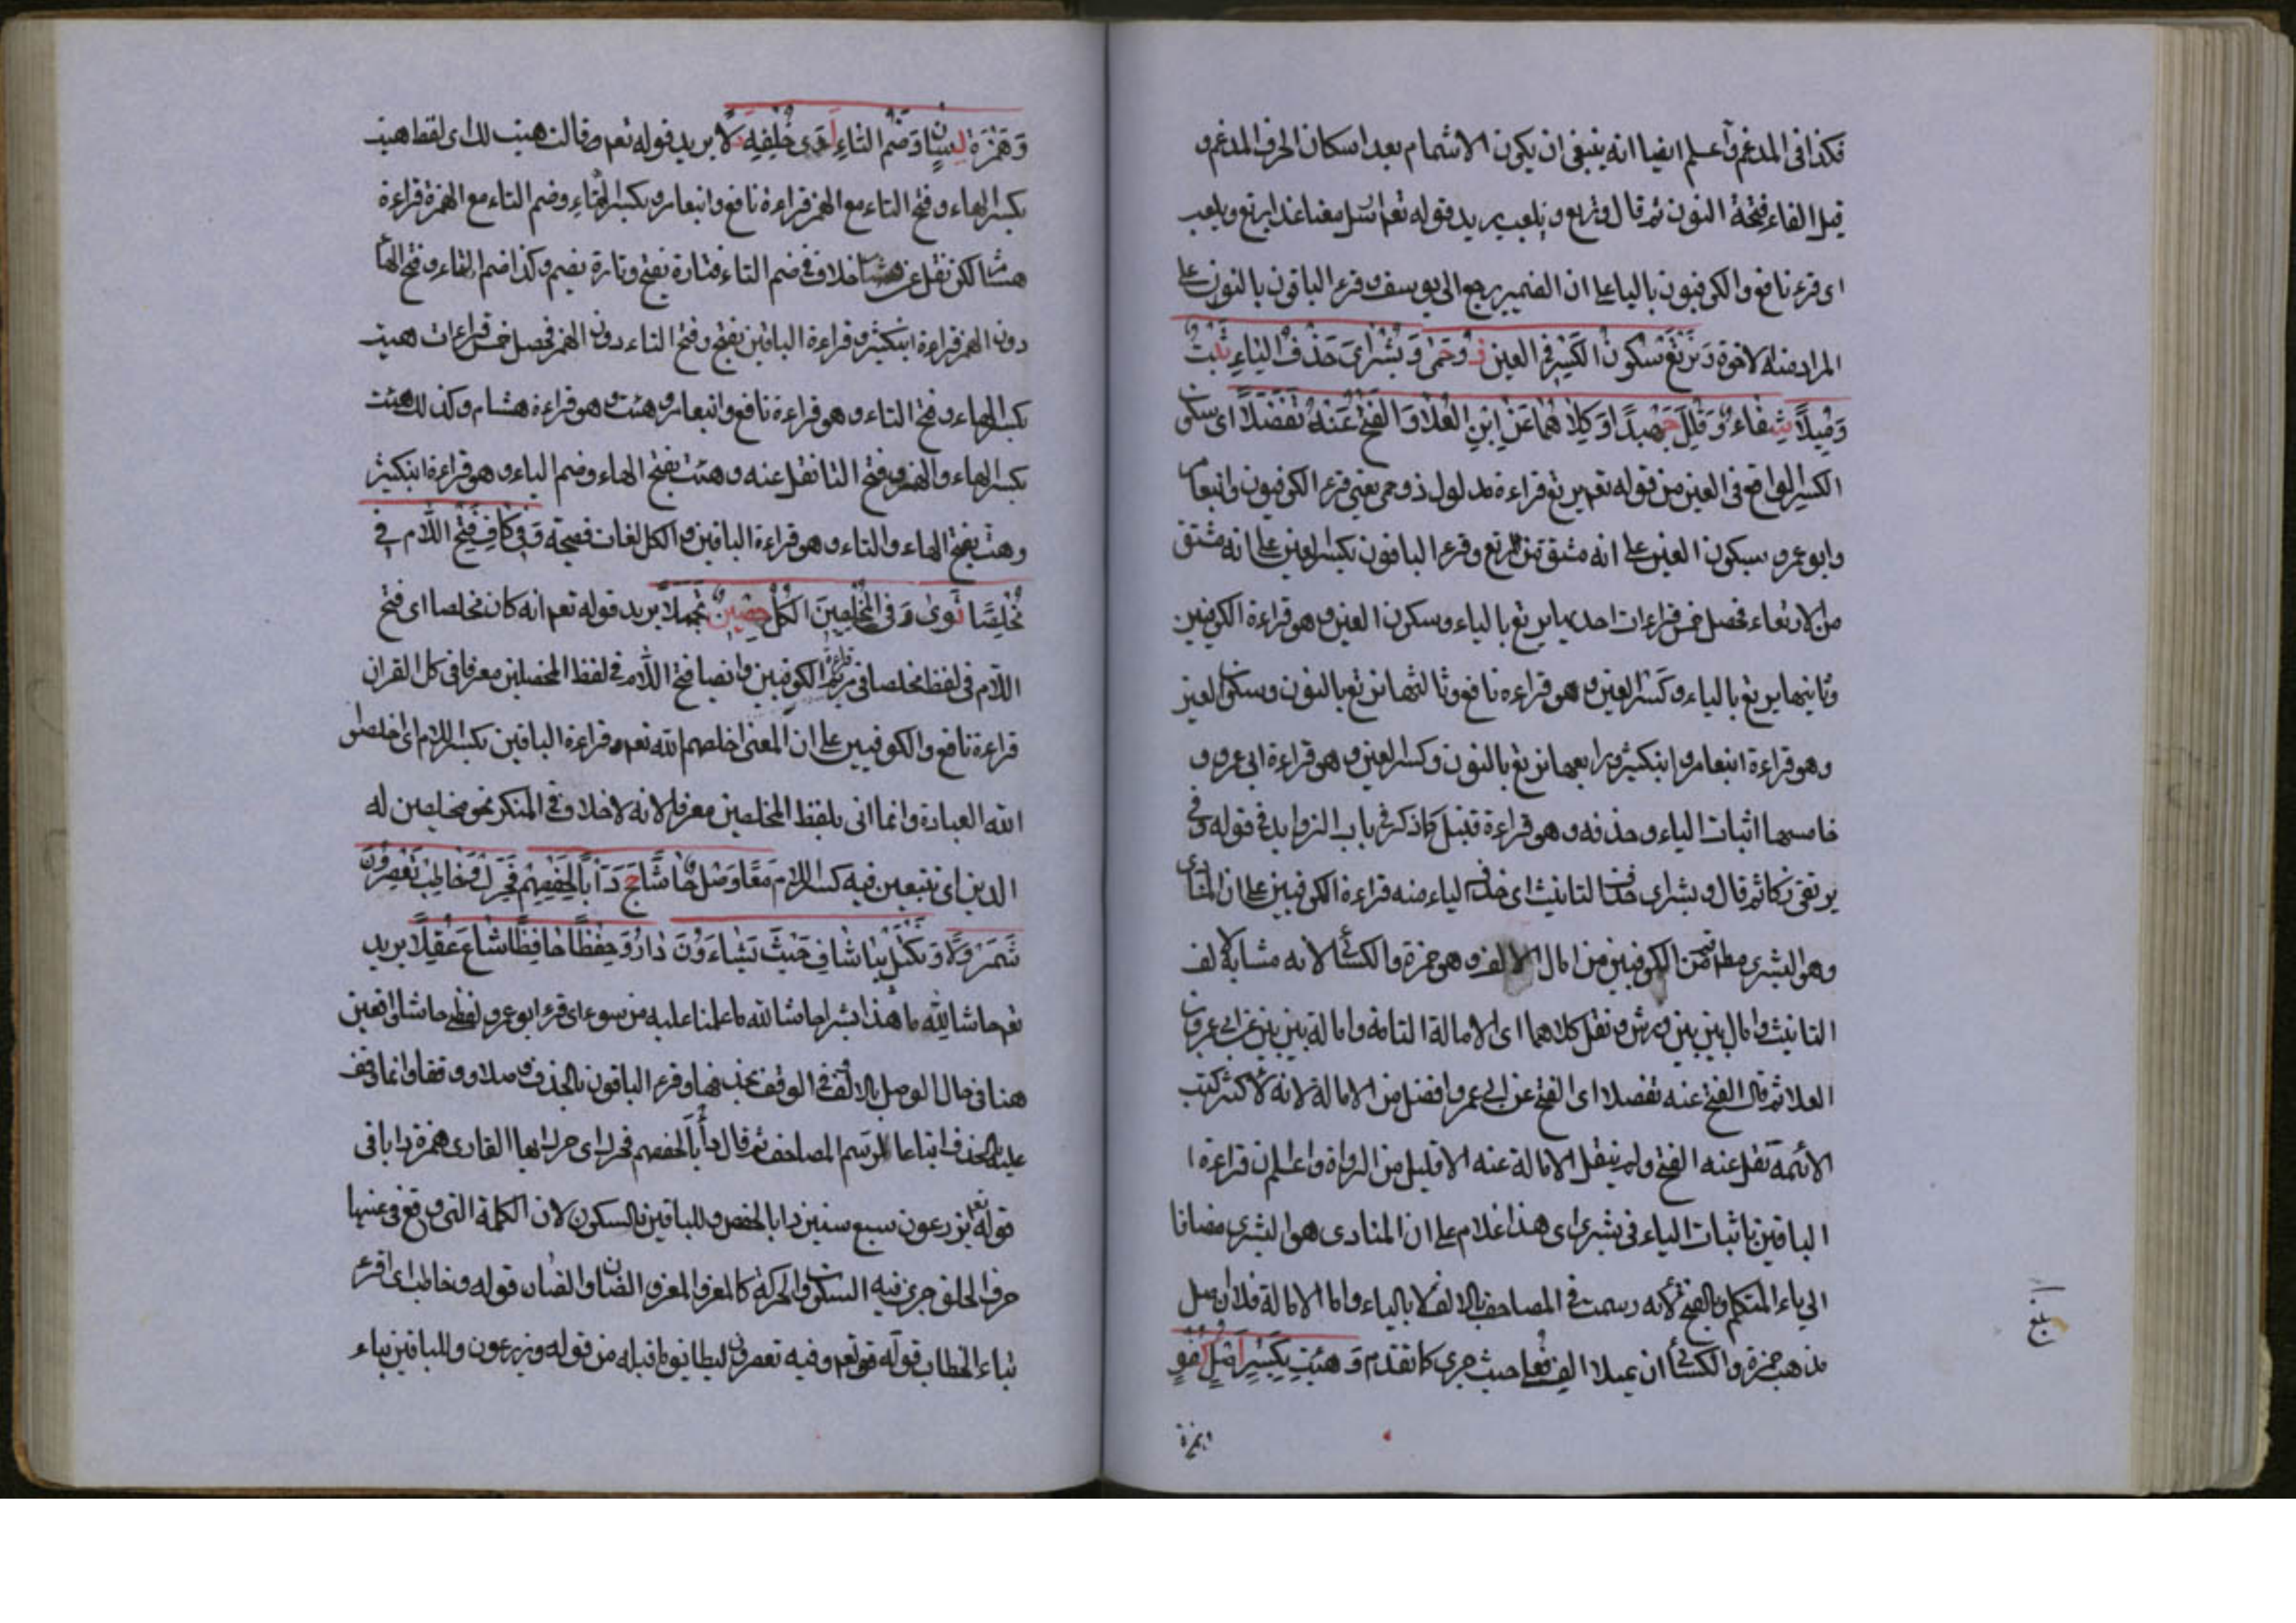 فكذا فى المدغم وأعلم ايضا انه ينبغى ان يكون الاشمام بعد اسكان الحرف المدغم و
قبل الفاء فتحة النون ثم قال ونرتع ونلعب يريد قوله تعم ارسل معنا غدا يرتع ويلعب
اى قرء نافع والكوفيون بالياء على ان الضمير يرجع الى يوسف وقرء الباقون بالنون على
المراد منه الاخوة وَيَرْتَعْ سُكُونُ الكَسْرِ فى العين ذُو حِمًى وَبُشْرَايَ حَذْفُ اليَاءِ ثَبْتٌ
وَمُيِّلاً شِفَاءٌ وَقَلِّلْ جَهْبِذًا وَكِلاَهُمَا عَنِ ابْنِ العَلاَ وَالفَتْحُ عَنْهُ تَفَضَّلاَ اى سكون
الكسر الواقع فى العين من قوله تعم يرتع قراءة مدلول ذو حمى يعنى قرء الكوفيون وابنعامر
وابو عمرو بسكون العين على انه مشتق من الرتع وقرء الباقون بكسر العين على انه مشتق
من الارتعاء فحصل خمس قراءات احديها يرتع بالياء وسكون العين وهو قراءة الكوفيين
وثانيها يرتع بالياء وكسر العين وهو قراءة نافع وثالثها نرتع بالنون وسكون العين
وهو قراءة ابنعامر وابنكثير ورابعها نرتع بالنون وكسر العين وهو قراءة ابى عمرو و
خامسها اثبات الياء وحذفه وهو قراءة قنبل كما ذكر فى باب الزوايد فى قوله وفى
نرتعى زكا ثم قال وبشراى حذف الياء ثبت اى حذف الياء منه قراءة الكوفيين على ان المنادى
وهو البشرى مط ثم من الكوفيين من امال الالف وهو حمزة والكسائى لانه مشابه لالف
التانيث وامال بين بين ورش ونقل كلاهما اى الامالة التامة وامالة بين بين عن ابى عمرو بن
العلا ثم قال الفتح عنه تفضلا اى الفتح عن ابى عمرو افضل من الامالة لانه لاكثر كتب
الائمة نقل عنه الفتح ولم ينقل الامالة عنه الا قليل من الرواة واعلم ان قراءة ا
الباقين باثبات الياء فى بشراى هذا غلام على ان المنادى هو البشرى مضافا
الى ياء المتكلم وبالفتح لانه رسمت فى المصاحف بالالف لا بالياء واما الامالة فلان اصل
مذهب حمزة والكسائى ان يميلا الف فعلى حيث جرى كما تقدم وَهَيْتَ بِكَسْرٍ أَصْلُ كُفْؤٍ
وهمزة
بلغ
وَهَمْزَةُ لِسَانٌ وَضَمُّ التَّاءِ لِوَى خُلْفِهِ دَلاَ يريد قوله تعم وقالت هيت لك اى لفظ هيت
بكسر الهاء وفتح التاء مع الهمز قراءة نافع وابنعامر وبكسر الهاء وضم التاء مع الهمزة قراءة
هشام لكن نقل عن هشام خلاف فى ضم التاء فتارة يفتح وتارة يضم وكذا ضم التاء وفتح الهاء
دون الهمز قراءة ابنكثير وقراءة الباقين بفتح وفتح التاء دون الهمز فحصل خمس قراءات هيت
بكسر الهاء وفتح التاء وهو قراءة نافع وابنعامر وهئت وهو قراءة هشام وكذلك هئت
بكسر الهاء والهمز وفتح التا نقل عنه وهيت بفتح الهاء وضم الياء وهو قراءة ابنكثير
وهيت بفتح الهاء والتاء وهو قراءة الباقين والكل لغات فصيحة وَفِى كَافَ فَتْحُ اللاَّمِ فِى
مُخْلِصًا ثَوَى وَفِى المُخْلِصِينَ الكُلِّ حِصْنٌ تَجَمَّلاَ يريد قوله تعم انه كان مخلصا اى فتح
اللام فى لفظ مخلصا فى مريم قراءة الكوفيين وايضا فتح اللام فى لفظ المخلصين معرفا فى كل القران
قراءة نافع والكوفيين على ان المعنى اخلصهم الله تعم وقراءة الباقين بكسر اللام اى اخلصوا
الله العبادة وانما اتى بلفظ المخلصين معرفا لانه لاخلاف فى المنكر نحو مخلصين له
الدين اى تتبعين فيه كسر اللام مَعًا وَصْلُ حَاشَا حَجَّ دَأْبًا لِحَفْصِهِمْ فَحَرِّكْ وَخَاطِبْ تَعْصِرُونَ
شَمَرْدَلاَ وَنَكْتَلْ بِيَا شَافٍ حَيْثُ تَشَاءُ نُونُ دَارٍ وَحِفْظًا حَافِظًا شَاعَ عُقَّلاَ يريد
تعم حاشا لله ما هذا بشرا حاشا لله ما علمنا عليه من سوء اى قرء ابو عمرو لفظى حاشا الواقعين
هنا فى حال الوصل بالالف وفى الوقف بحذفها وقرء الباقون بالحذف وصلا ووقفا وانما وقف
عليه بالحذف اتباعا لرسم المصاحف ثم قال دأبا لحفصهم فحرك اى حرك ايها القارى همزة دابا فى
قوله تعم تزرعون سبع سنين دابا لحفص وللباقين بالسكون لان الكلمة التى وقع فى عينها
حرف الحلق جرى فيه السكون والحركة كالمعز والمعز والضان والضان قوله وخاطب اى اقرء
بتاء الخطاب قوله تعم وفيه تعصرون ليطابق ما قبله من قوله وتزرعون وللباقين بياء